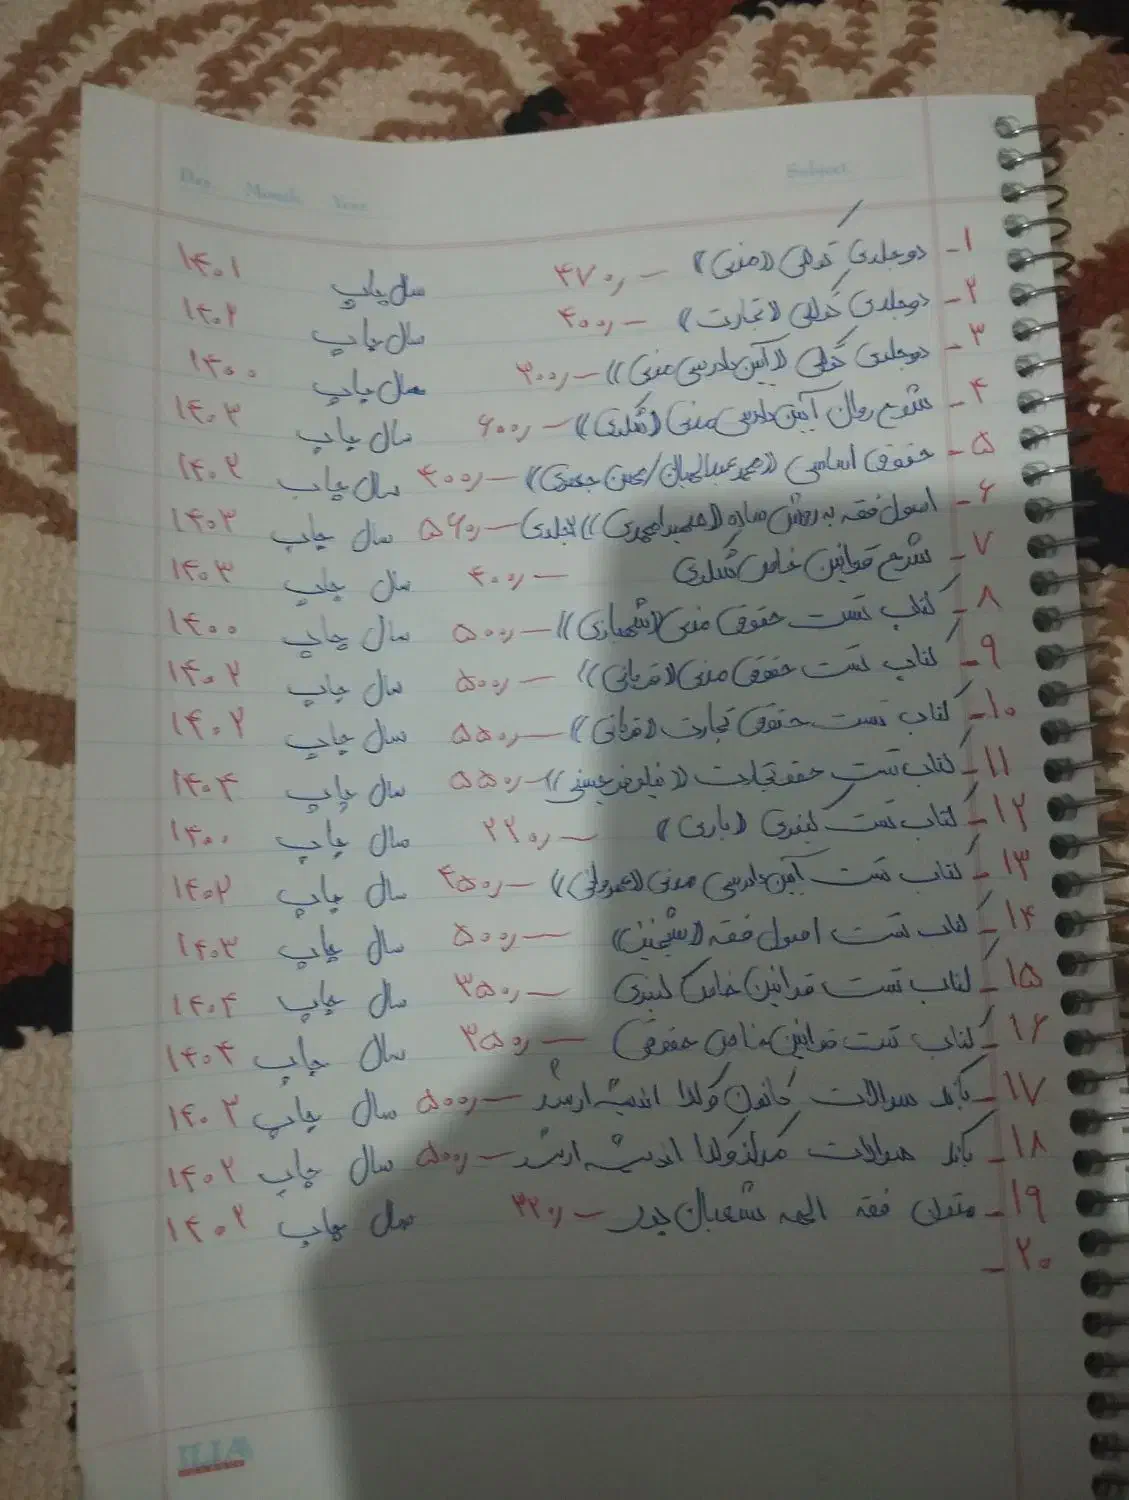 Subject Year Month Day
۱- دو جلدی توکلی «مدنی» ۴۷۰٫— سال چاپ ۱۴۰۱
۲- دو جلدی توکلی «تجارت» ۴۰۰٫— سال چاپ ۱۴۰۲
۳- دو جلدی توکلی «آیین دادرسی مدنی» ۳۰۰٫— سال چاپ ۱۴۰۰
۴- شرح روان آیین دادرسی مدنی (شکری) ۶۰۰٫— سال چاپ ۱۴۰۳
۵- حقوق اساسی «محمد عبدالهیان/ معین جعفری» ۴۰۰٫— سال چاپ ۱۴۰۲
۶- اصول فقه به روش ساده «حمید احمدی» ۲جلدی ۵۶۰٫— سال چاپ ۱۴۰۳
۷- شرح قوانین خاص شکری ۴۰۰٫— سال چاپ ۱۴۰۳
۸- کتاب تست حقوق مدنی «شهبازی» ۵۰۰٫— سال چاپ ۱۴۰۰
۹- کتاب تست حقوق مدنی «قربانی» ۵۰۰٫— سال چاپ ۱۴۰۲
۱۰- کتاب تست حقوق تجارت «قربانی» ۵۵۰٫— سال چاپ ۱۴۰۲
۱۱- کتاب تست حقوق تجارت ۵۵۰٫— سال چاپ ۱۴۰۴
۱۲- کتاب تست کیفری «یاری» ۲۲۰٫— سال چاپ ۱۴۰۰
۱۳- کتاب تست آیین دادرسی مدنی ۴۵۰٫— سال چاپ ۱۴۰۲
۱۴- کتاب تست اصول فقه ۵۰۰٫— سال چاپ ۱۴۰۳
۱۵- کتاب تست قوانین خاص کیفری ۳۵۰٫— سال چاپ ۱۴۰۴
۱۶- کتاب تست قوانین خاص حقوقی ۳۵۰٫— سال چاپ ۱۴۰۴
۱۷- بانک سوالات کانون وکلا اندیشه ارشد ۵۰۰٫— سال چاپ ۱۴۰۳
۱۸- بانک سوالات مرکز وکلا اندیشه ارشد ۵۰۰٫— سال چاپ ۱۴۰۲
۱۹- متون فقه الهه شعبان پور ۳۲۰٫— سال چاپ ۱۴۰۲
۲۰-
ILIA